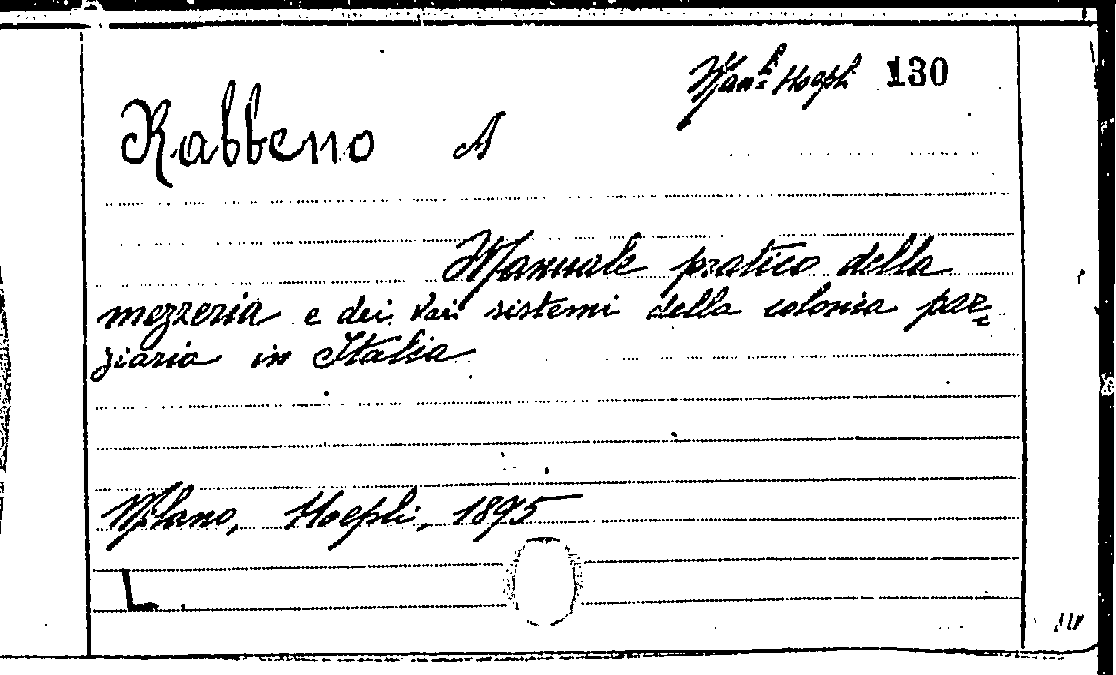 Man.li Hoepli 130
Rabbeno A
Manuale pratico della
mezzeria e dei vari sistemi della colonia par-
ziaria in Italia
Milano, Hoepli, 1895
L